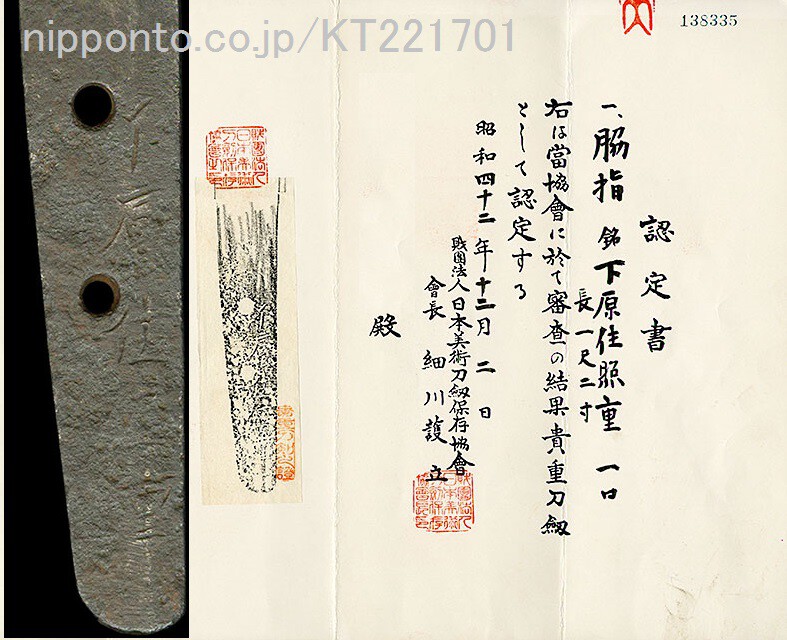 nipponto.co.jp/KT221701
138335
認定書
一、脇指 銘 下原住照重 一口
長一尺二寸
右は當協會に於て審査の結果貴重刀劔
として認定する
昭和四十二年十二月二日
財團法人日本美術刀劔保存協會
會長 細川護立
殿